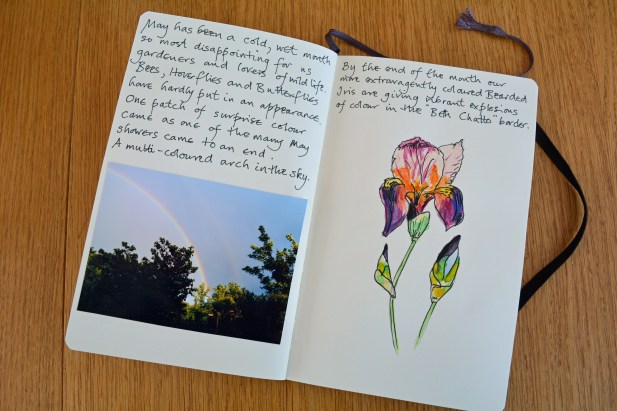 May has been a cold, wet month
so most disappointing for us
gardeners and lovers of wildlife.
Bees, Hoverflies and Butterflies
have hardly put in an appearance.
One patch of surprise colour
came as one of the many May
showers came to an end.
A multi-coloured arch in the sky.
By the end of the month our
more extravagently coloured Bearded
Iris are giving vibrant explosions
of colour in the "Beth Chatto" border.